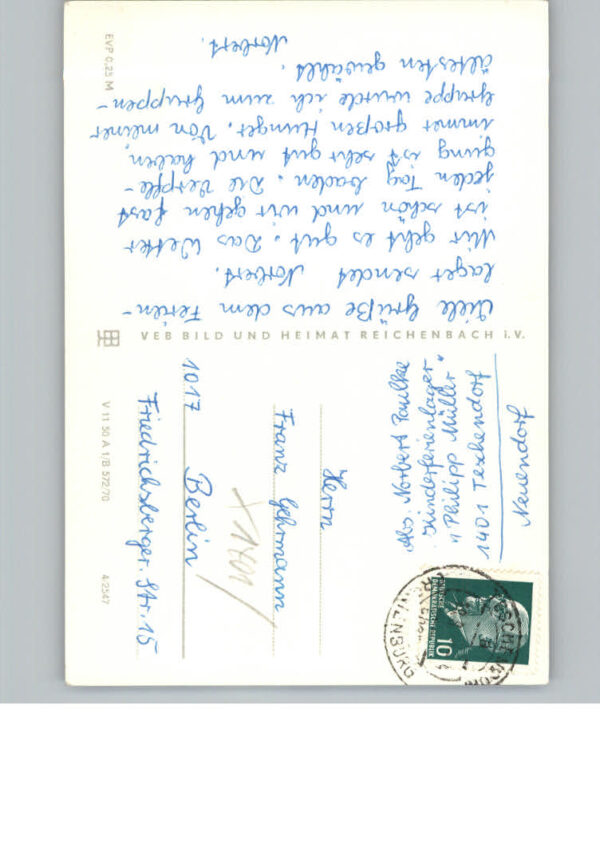 Viele Grüße aus dem Ferien-
lager sendet Norbert.
Mir geht es gut. Das Wetter
ist schön und wir gehen fast
jeden Tag baden. Die Verpfle-
gung ist sehr gut und haben
immer großen Hunger. Von meiner
Gruppe wurde ich zum Gruppen-
ältesten gewählt.
Norbert.
EVP 0,25 M
VEB BILD UND HEIMAT REICHENBACH i.V.
V 11 50 A 1/B 572/70
4/2547
Abs. Norbert Paulke
Kinderferienlager
"Philipp Müller"
1401 Teschendorf
Neuendorf
DEUTSCHE
DEMOKRATISCHE REPUBLIK
10
TESCHENDORF
ORANIENBURG
Herrn
Franz Gehrmann
1017 Berlin
Friedrichsberger. Str. 15